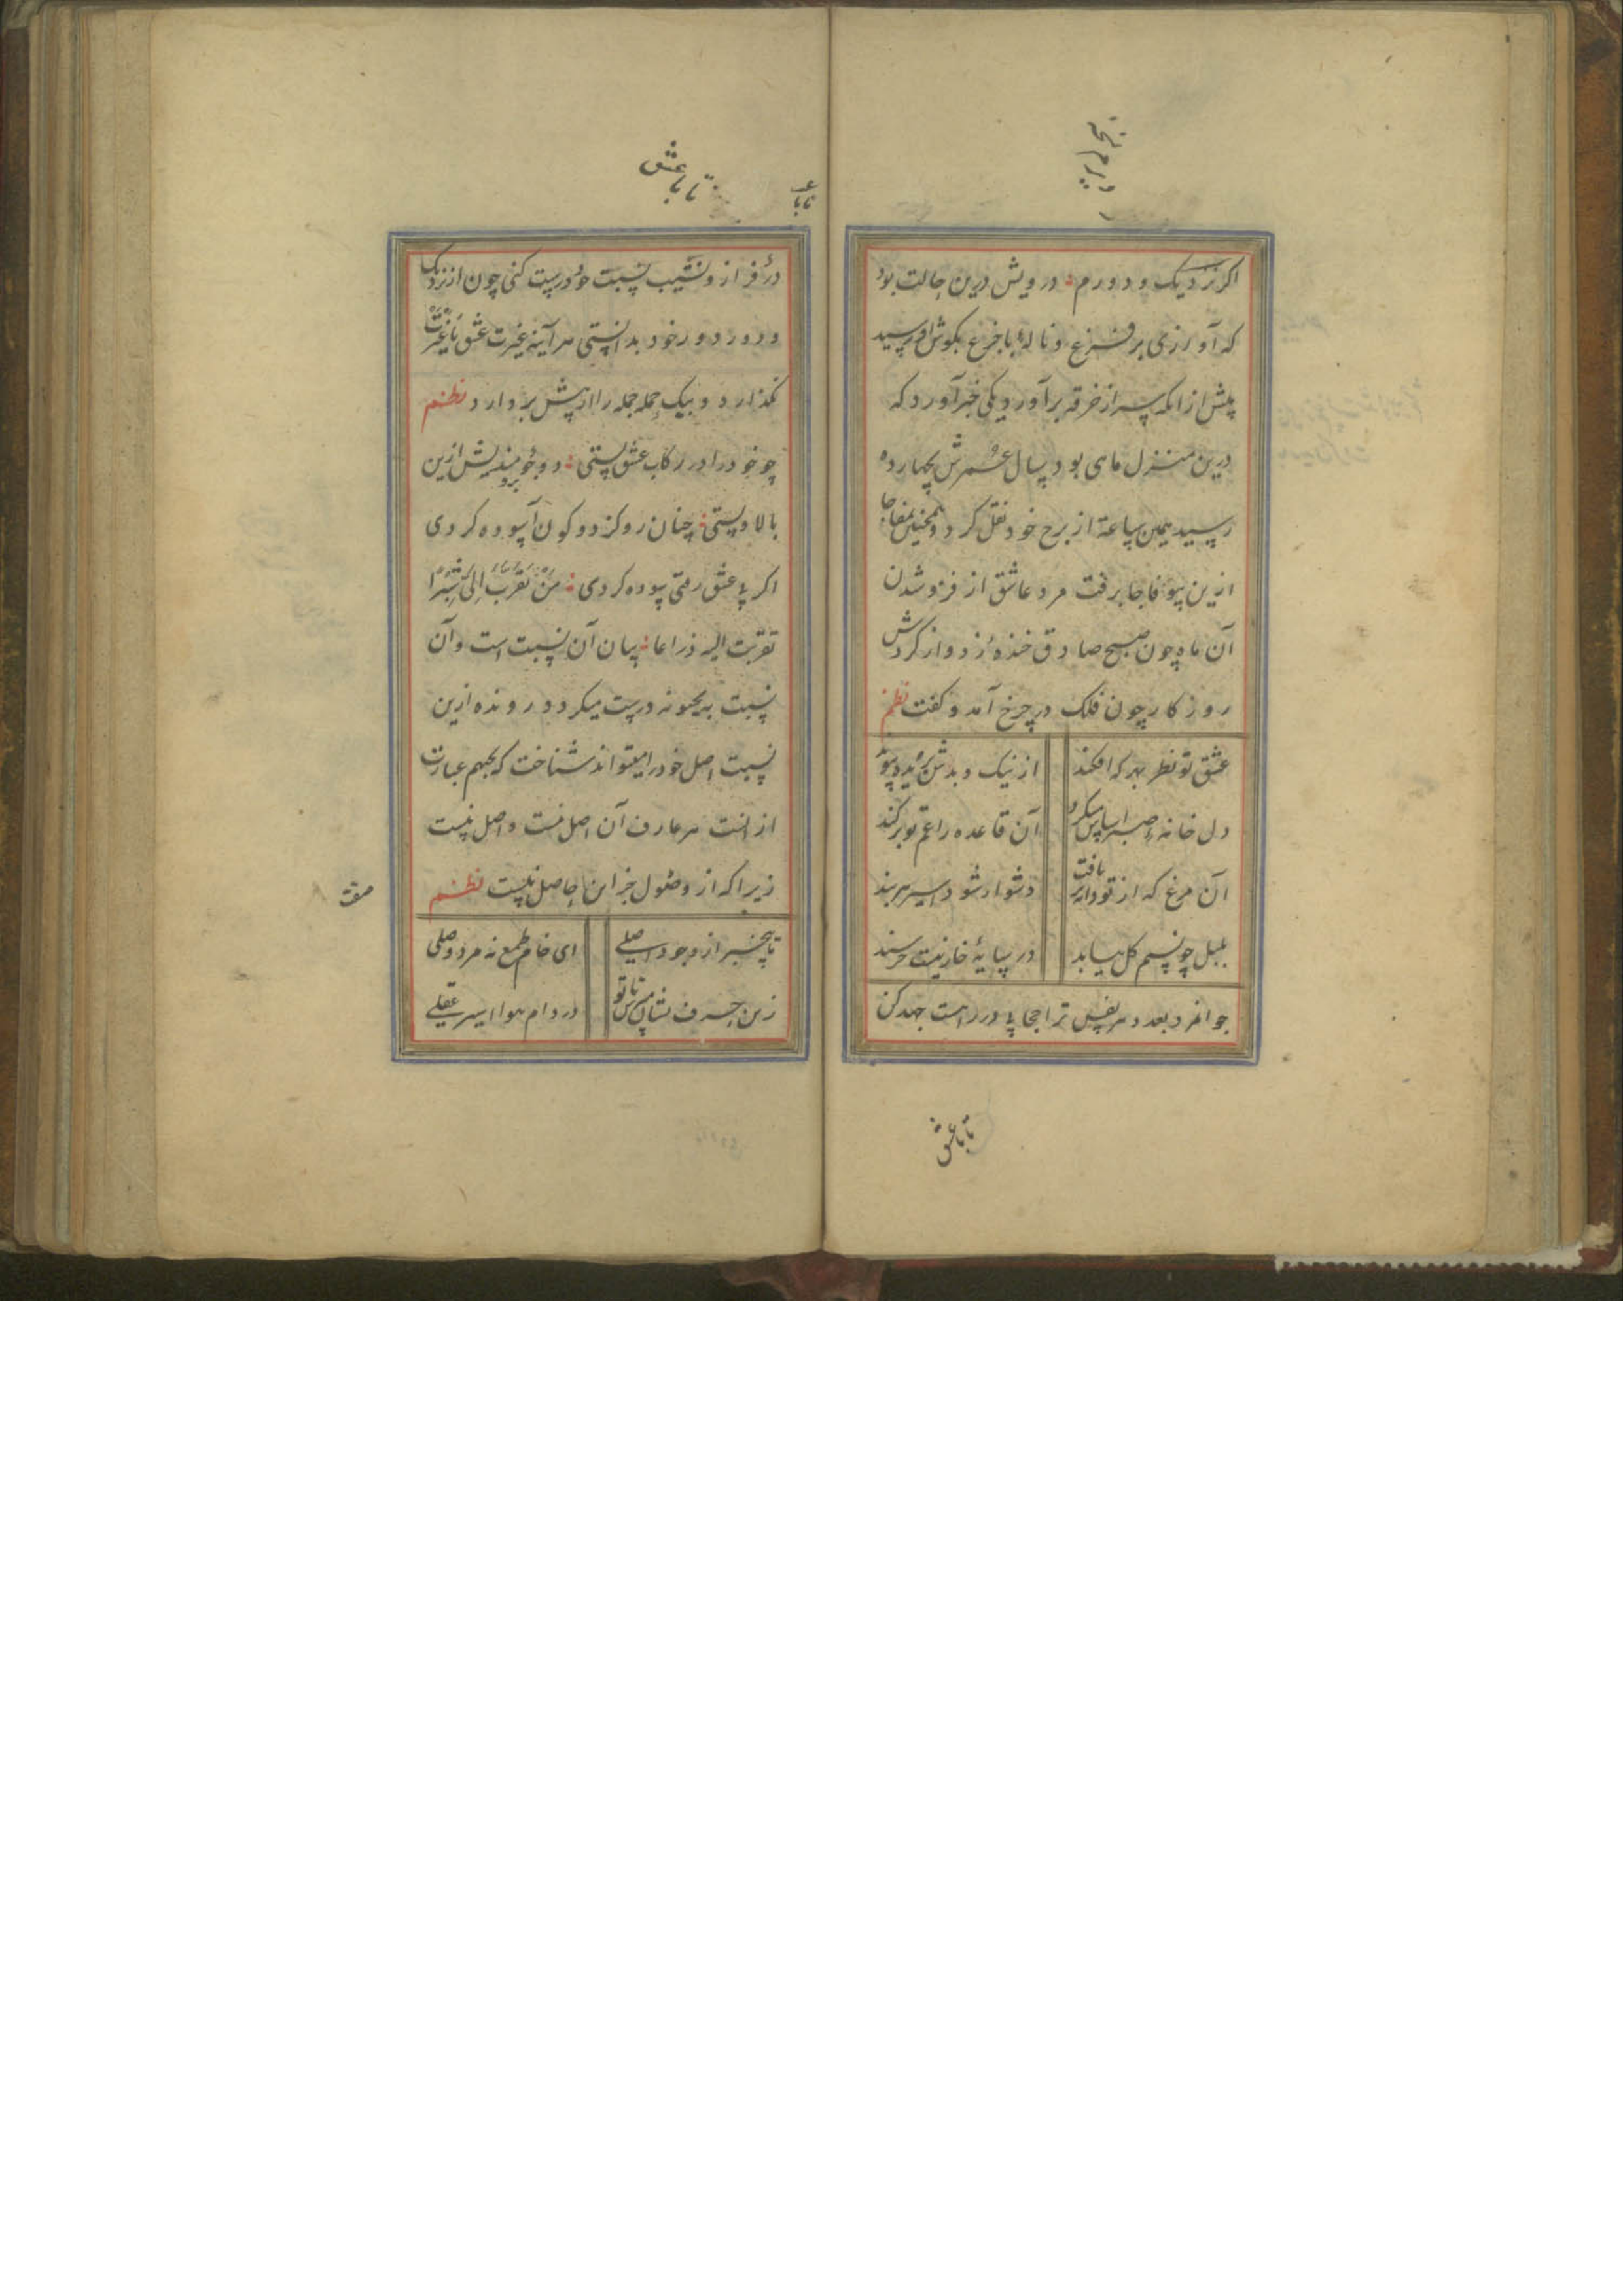 اگر نزدیک و دورم درویش درین حالت بود
که آوازی بر فزع و نالهٔ با جزع بگوش او رسید
پیش از انکه سر از خرقه برآورد یکی خبر آورد که
درین منزل ماهی بود سال عمرش بچهارده
رسید همین ساعة از برج خود نقل کرد و همچنین بمفاجا
ازین بیوفا جا برفت مرد عاشق از فرو شدن
آن ماه چون صبح صادق خندهٔ زد و از کردش
روزکار چون فلک در چرخ آمد و گفت نظم
عشق تو نظر بهر که افکند از نیک و بدش برید پیوند
دل خانهٔ صبر اساس میکرد آن قاعده را غم تو برکند
آن مرغ که از تو دانه یافت دشوار شود اسیر هر بند
بلبل چو نسیم کل بیابد در سایهٔ خار نیست خرسند
جوانمرد بعد و هر نفس ترا اینجا پا در راهست جهد کن
تا با عشق
تا با عشق
در فراز و نشیب نسبت خود درست کنی چون از نزدیک
و دور دور خود بدانستی هر آینه غیرت عشق با غیرت
نگذارد و بیک حمله جمله را از پیش بردارد نظم
چو خود را در رکاب عشق بستی دو جو مندیش ازین
برو
بالا و پستی چنان رو کز دو کون آسوده کردی
اگر با عشق رفتی سوده کردی مَنْ تَقَرَّبَ اِلَیَّ شِبْرًا
تقربت الیه ذراعا بیان آن نسبت است و آن
نسبت بدیکونه درست میکردد رونده ازین
نسبت اصل خود را میتواند شناخت که بجهم عبارت
از انست هر عارف آن اصل هست و اصل نیست
زیرا که از وصول جز این حاصل نیست نظم
تا بیخبر از وجود اصلی ای خام طمع نه مرد وصلی
زین حرف نشان مپرس تا تو در دام هوا اسیر عقلی